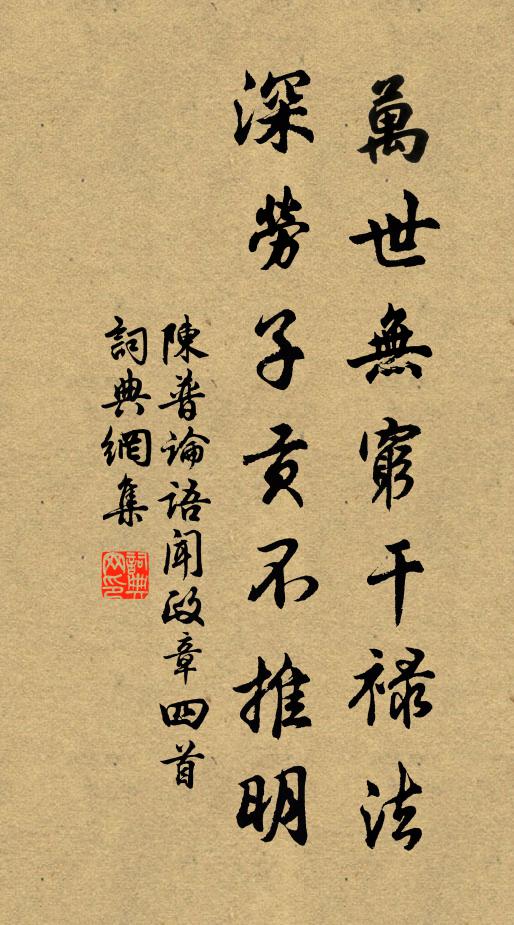 萬世無窮干祿法
深勞子貢不推明
陳普論語聞政章四首
詞典網集
詞典網印